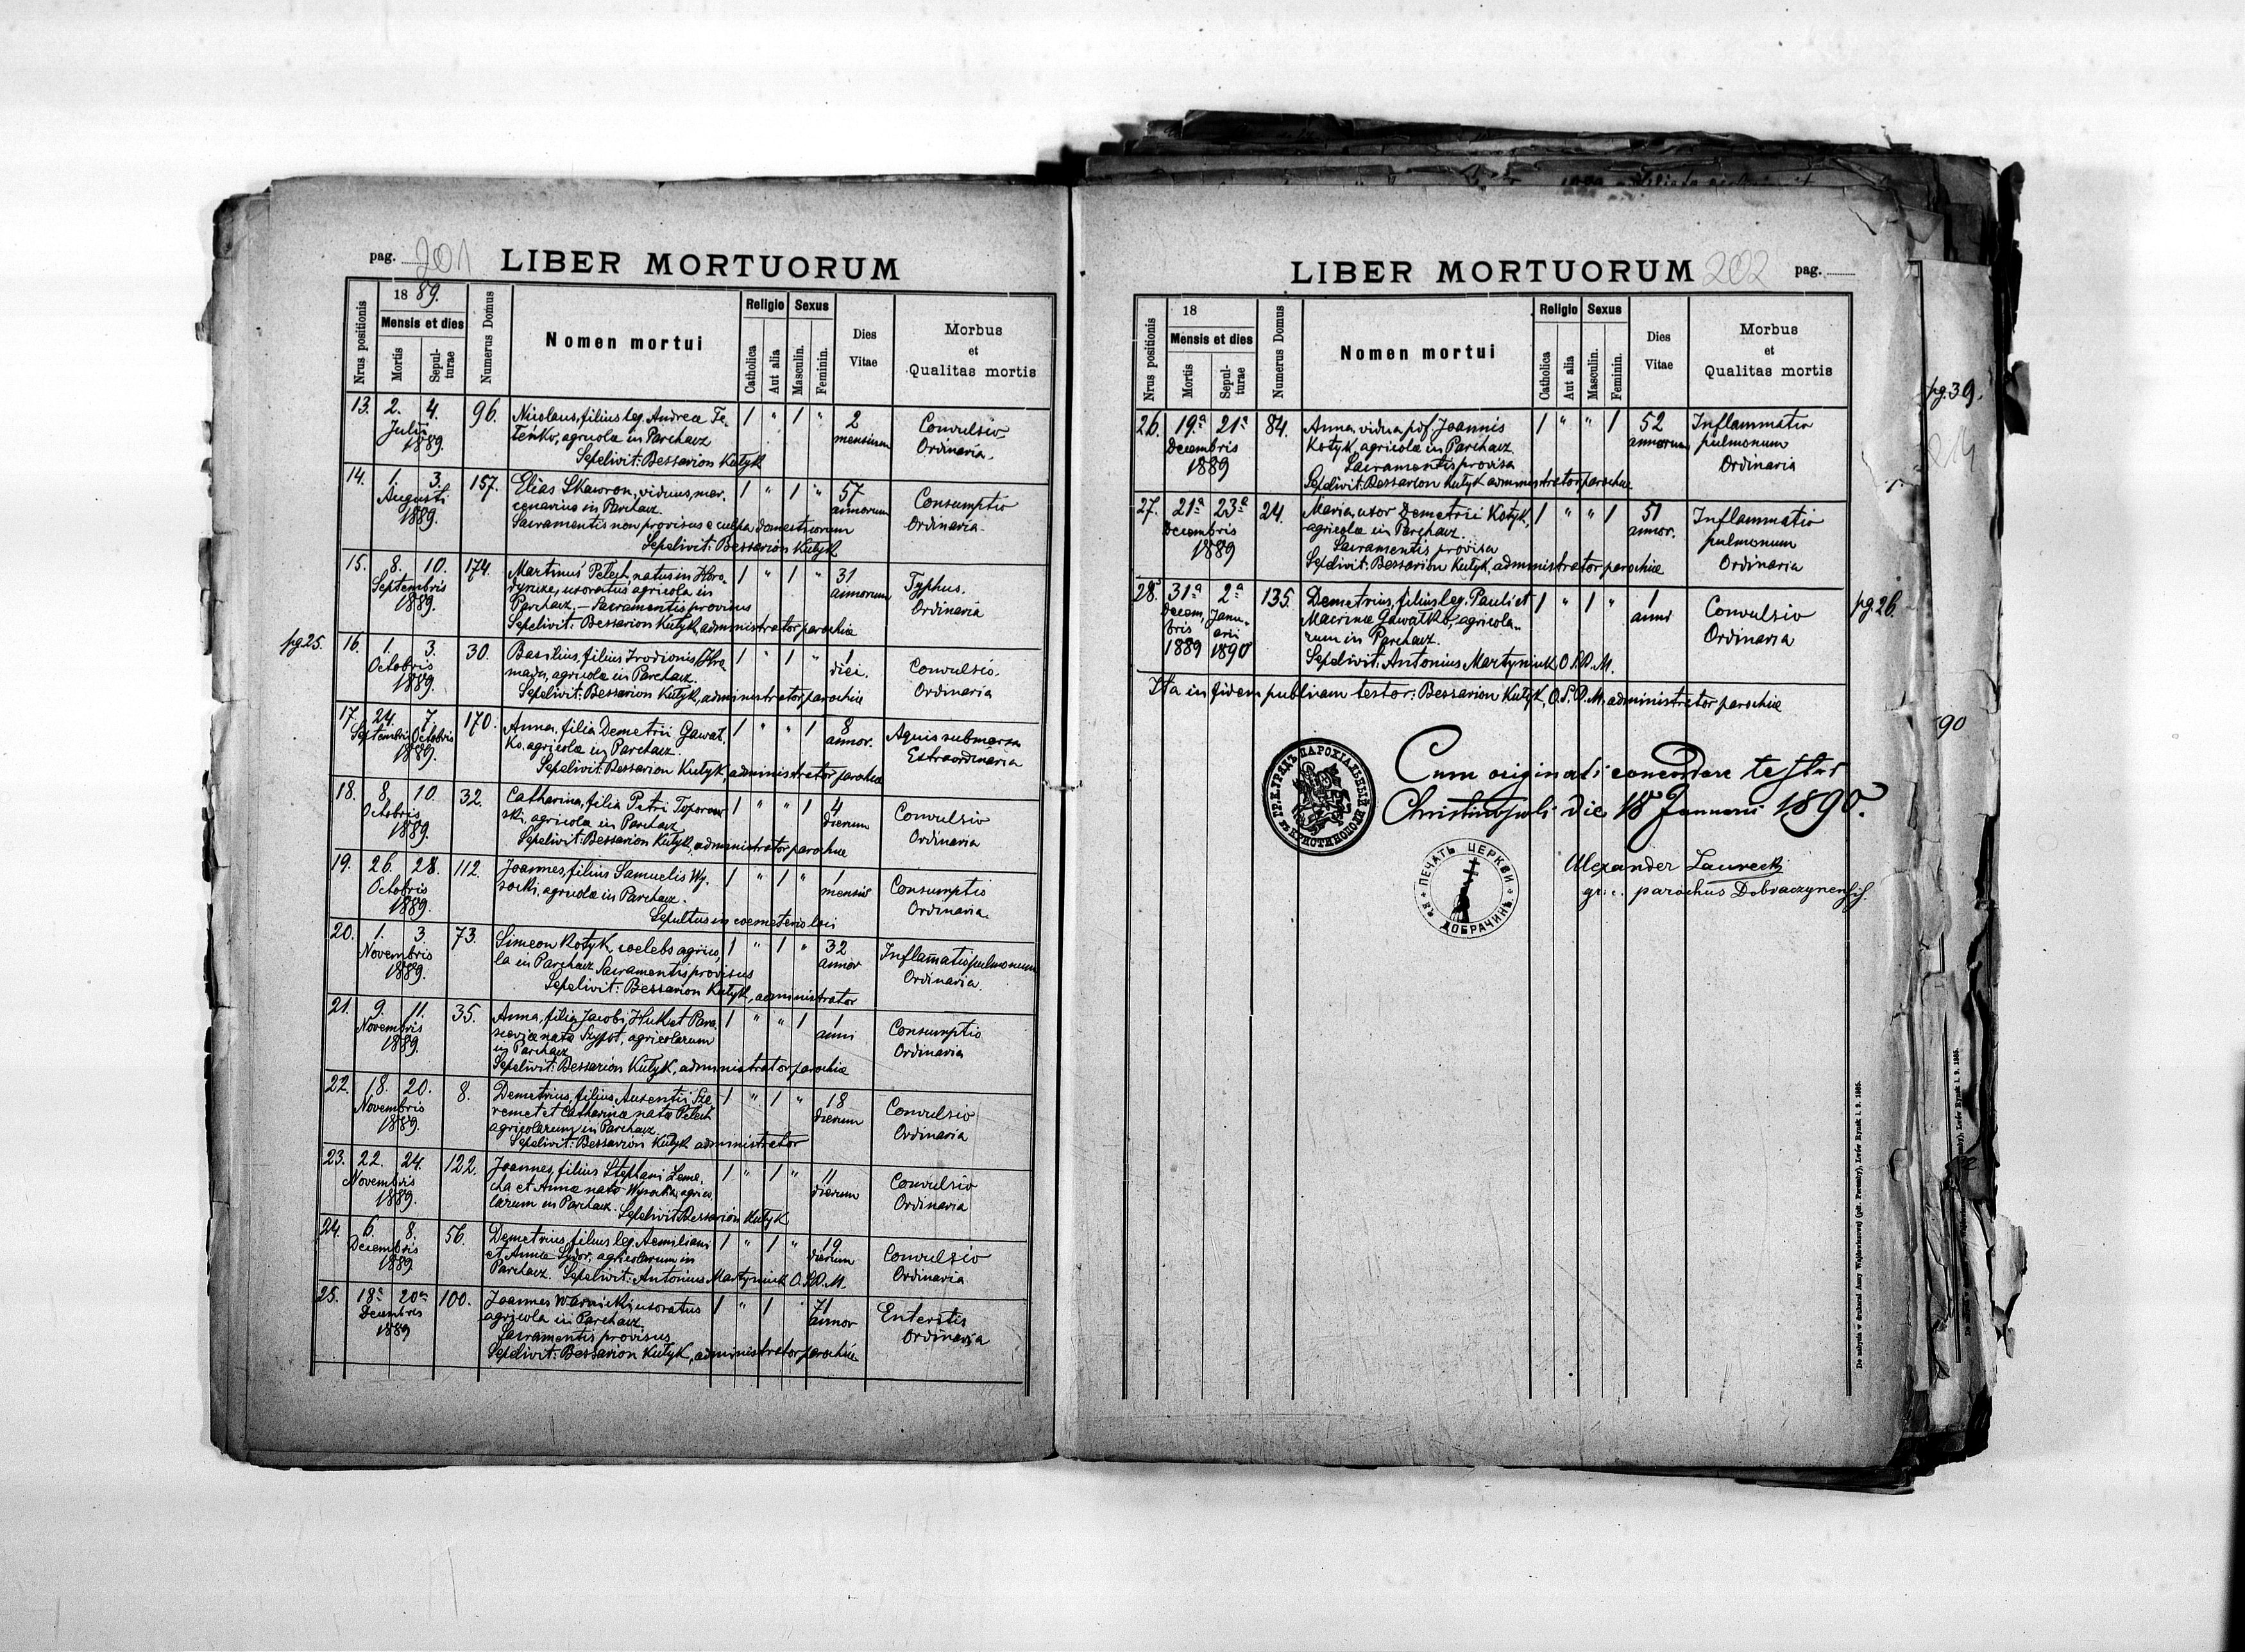 pag. 201 LIBER MORTUORUM
Nrus positionis
1889.
Mensis et dies
Mortis
Sepulturae
Numerus Domus
Nomen mortui
Religio
Catholica
Aut alia
Sexus
Masculin.
Feminin.
Dies Vitae
Morbus et Qualitas mortis
13. 2. 4. 96. Nicolaus, filius leg. Andreae Fe- 1 " 1 " 2 Convulsio
Julii teńko, agricolae in Parchacz mensium Ordinaria.
1889. Sepelivit: Bessarion Kutyk
14. 1. 3. 157. Elias Skawron, viduus, mer- 1 " 1 " 57 Consumptio
Augusti cenarius in Parchacz. annorum Ordinaria
1889. Sacramentis non provisus e culpa domesticorum
Sepelivit: Bessarion Kutyk
15. 8. 10. 174. Martinus Petech, natus in Horo- 1 " 1 " 31 Typhus.
Septembris uxoratus agricola in annorum Ordinaria
1889. Parchacz, – Sacramentis provisus
Sepelivit: Bessarion Kutyk, administrator parochiae
pg. 25. 16. 1. 3. 30. Basilius, filius Irodionis Hro- 1 " 1 " 1 Convulsio.
Octobris mada, agricolae in Parchacz. diei. Ordinaria
1889. Sepelivit: Bessarion Kutyk, administrator parochiae
17. 24. 7. 170. Anna, filia Demetrii Gawat- 1 " " 1 8 Aquis submersa
Septembris Octobris ko, agricolae in Parchacz. annor. Extraordinaria
1889. Sepelivit: Bessarion Kutyk, administrator parochiae
18. 8. 10. 32. Catharina, filia Petri Toporow- 1 " " 1 4 Convulsio
Octobris ski, agricolae in Parchacz dierum Ordinaria
1889. Sepelivit: Bessarion Kutyk, administrator parochiae
19. 26. 28. 112. Joannes, filius Samuelis Wy- 1 " 1 " 1 Consumptio
Octobris socki, agricolae in Parchacz. mensis Ordinaria.
1889. Sepultus in coemeterio loci
20. 1. 3. 73. Simeon Kotyk, coelebs agrico- 1 " 1 " 32 Inflamatio pulmonum
Novembris la in Parchacz Sacramentis provisus annor Ordinaria.
1889. Sepelivit: Bessarion Kutyk, administrator
21. 9. 11. 35. Anna, filia Jacobi Huk et Para- 1 " " 1 1 Consumptio
Novembris sceviae nata Szypot, agricolarum anni Ordinaria
1889. in Parchacz
Sepelivit: Bessarion Kutyk, administrator parochiae
22. 18. 20. 8. Demetrius, filius Auxentii Sze- 1 " 1 " 18 Convulsio
Novembris remet et Catharinae nata Petech dierum Ordinaria
1889. agricolarum in Parchacz.
Sepelivit: Bessarion Kutyk administrator
23. 22. 24. 122. Joannes, filius Stephani Leme- 1 " 1 " 11 Convulsio
Novembris cha et Annae nata Wysocka, agrico- dierum Ordinaria
1889. larum in Parchacz. Sepelivit Bessarion Kutyk
24. 6. 8. 56. Demetrius, filius leg. Aemiliani 1 " 1 " 19 Convulsio
Decembris et Annae Sydor, agricolarum in dierum Ordinaria
1889 Parchacz. Sepelivit: Antonius Martyniuk O.S.B.M.
25. 18ª 20ª 100. Joannes Warnicki, uxoratus 1 " 1 " 71 Enteritis
Decembris agricola in Parchacz annor Ordinaria
1889 Sacramentis provisus
Sepelivit: Bessarion Kutyk, administrator parochiae
LIBER MORTUORUM 202 pag.
Nrus positionis
18
Mensis et dies
Mortis
Sepulturae
Numerus Domus
Nomen mortui
Religio
Catholica
Aut alia
Sexus
Masculin.
Feminin.
Dies Vitae
Morbus et Qualitas mortis
26. 19ª 21ª 84. Anna, vidua p. def. Joannis 1 " " 1 52 Inflammatio
Decembris Kotyk, agricolae in Parchacz annorum pulmonum
1889 Sacramentis provisa Ordinaria
Sepelivit: Bessarion Kutyk administrator parochiae
27. 21ª 23ª 24. Maria, uxor Demetrii Kotyk, 1 " " 1 51 Inflammatio
Decembris agricolae in Parchacz. annor. pulmonum
1889 Sacramentis provisa Ordinaria
Sepelivit: Bessarion Kutyk, administrator parochiae
28. 31ª 2ª 135. Demetrius, filius leg. Pauli et 1 " 1 " 1 Convulsio pg. 26.
Decem- Janu- Macrinae Gawatko, agricola- anni Ordinaria
bris arii rum in Parchacz.
1889 1890 Sepelivit: Antonius Martyniuk, O.S.B.M.
Ita in fidem publicam testor: Bessarion Kutyk, O.S.B.M. administrator parochiae
Cum originali concordare testor
Christinopoli die 18 Januarii 1890.
Alexander Laurecki
gr. c. parochus Dobraczynensis
ПЕЧАТЬ ЦЕРКВИ
ДОБРАЧИНЪ
pg. 39.
90
De nabycia w drukarni Anny Wajdowiczowej (plt. Poremby), Lwów Rynek l. 9. 1885.